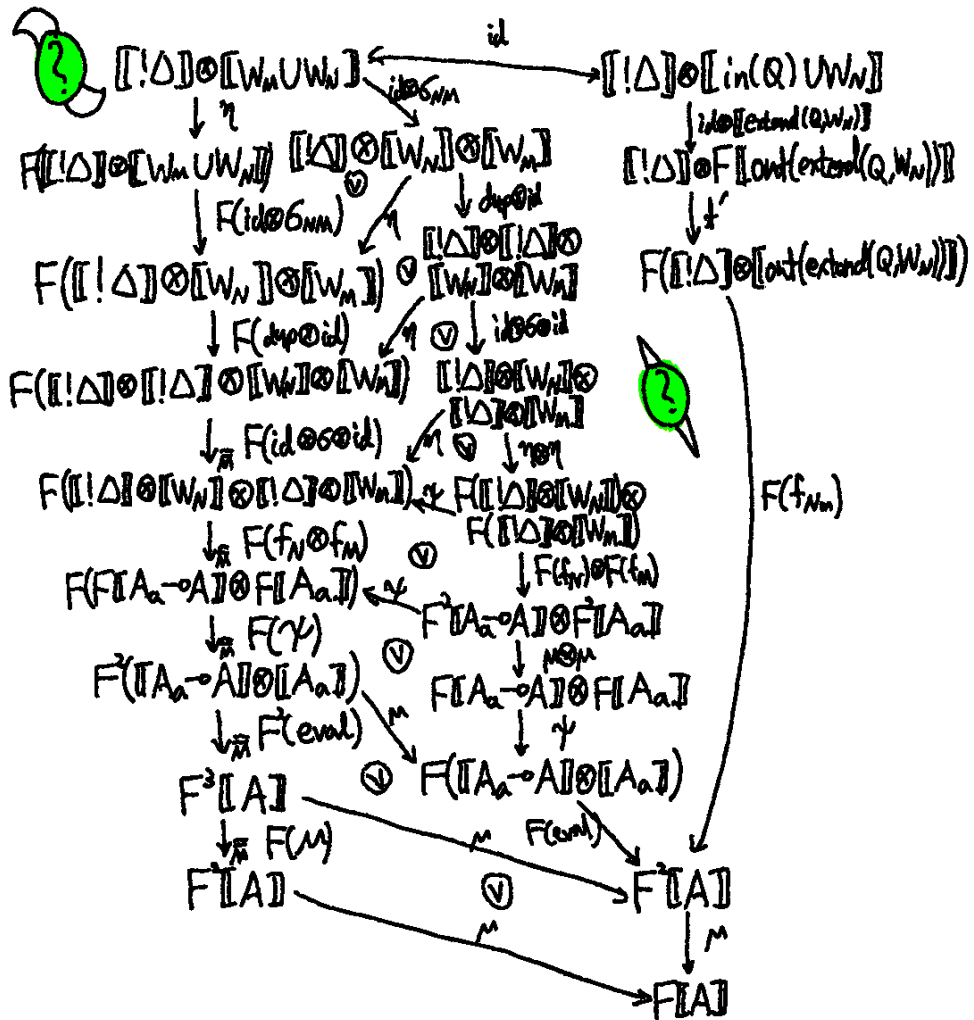 ?
id
[[!Δ]]⊗[[W_M∪W_N]]
[[!Δ]]⊗[[in(Q)∪W_N]]
id⊗σ_NM
↓η
↓id⊗[[extend(Q,W_N)]]
F([[!Δ]]⊗[[W_M∪W_N]])
[[!Δ]]⊗[[W_N]]⊗[[W_M]]
[[!Δ]]⊗F[[out(extend(Q,W_N))]]
↓F(id⊗σ_NM)
√
η
↓dup⊗id
↓t'
F([[!Δ]]⊗[[W_N]]⊗[[W_M]])
√
[[!Δ]]⊗[[!Δ]]⊗
[[W_N]]⊗[[W_M]]
F([[!Δ]]⊗[[out(extend(Q,W_N))]])
↓F(dup⊗id)
η
√
↓id⊗σ⊗id
F([[!Δ]]⊗[[!Δ]]⊗[[W_N]]⊗[[W_M]])
[[!Δ]]⊗[[W_N]]⊗
[[!Δ]]⊗[[W_M]]
?
↓F(id⊗σ⊗id)
η
√
↓η⊗η
F([[!Δ]]⊗[[W_N]]⊗[[!Δ]]⊗[[W_M]])
ψ
F([[!Δ]]⊗[[W_N]])⊗
F([[!Δ]]⊗[[W_M]])
F(f_NM)
↓F(f_N⊗f_M)
√
↓F(f_N)⊗F(f_M)
F(F[[A_a⊸A]]⊗F[[A_a]])
ψ
F²[[A_a⊸A]]⊗F²[[A_a]]
↓F(ψ)
√
↓μ⊗μ
F²([[A_a⊸A]]⊗[[A_a]])
F[[A_a⊸A]]⊗F[[A_a]]
↓F²(eval)
μ
↓ψ
√
F([[A_a⊸A]]⊗[[A_a]])
F³[[A]]
F(eval)
↓F(μ)
μ
F²[[A]]
√
F²[[A]]
μ
↓μ
F[[A]]